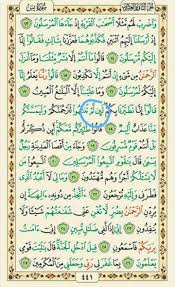 سورة يس
وَاضْرِبْ لَهُم مَّثَلًا أَصْحَابَ الْقَرْيَةِ إِذْ جَاءَهَا الْمُرْسَلُونَ ١٣
إِذْ أَرْسَلْنَا إِلَيْهِمُ اثْنَيْنِ فَكَذَّبُوهُمَا فَعَزَّزْنَا بِثَالِثٍ فَقَالُوا
إِنَّا إِلَيْكُم مُّرْسَلُونَ ١٤ قَالُوا مَا أَنتُمْ إِلَّا بَشَرٌ مِّثْلُنَا وَمَا أَنزَلَ
الرَّحْمَٰنُ مِن شَيْءٍ إِنْ أَنتُمْ إِلَّا تَكْذِبُونَ ١٥ قَالُوا رَبُّنَا يَعْلَمُ إِنَّا
إِلَيْكُمْ لَمُرْسَلُونَ ١٦ وَمَا عَلَيْنَا إِلَّا الْبَلَاغُ الْمُبِينُ ١٧
قَالُوا إِنَّا تَطَيَّرْنَا بِكُمْ لَئِن لَّمْ تَنتَهُوا لَنَرْجُمَنَّكُمْ وَلَيَمَسَّنَّكُم
مِّنَّا عَذَابٌ أَلِيمٌ ١٨ قَالُوا طَائِرُكُم مَّعَكُمْ أَئِن ذُكِّرْتُم
بَلْ أَنتُمْ قَوْمٌ مُّسْرِفُونَ ١٩ وَجَاءَ مِنْ أَقْصَى الْمَدِينَةِ
رَجُلٌ يَسْعَىٰ قَالَ يَا قَوْمِ اتَّبِعُوا الْمُرْسَلِينَ ٢٠ اتَّبِعُوا
مَن لَّا يَسْأَلُكُمْ أَجْرًا وَهُم مُّهْتَدُونَ ٢١ وَمَا لِيَ لَا أَعْبُدُ الَّذِي
فَطَرَنِي وَإِلَيْهِ تُرْجَعُونَ ٢٢ أَأَتَّخِذُ مِن دُونِهِ آلِهَةً إِن
يُرِدْنِ الرَّحْمَٰنُ بِضُرٍّ لَّا تُغْنِ عَنِّي شَفَاعَتُهُمْ شَيْئًا وَلَا
يُنقِذُونِ ٢٣ إِنِّي إِذًا لَّفِي ضَلَالٍ مُّبِينٍ ٢٤ إِنِّي آمَنتُ
بِرَبِّكُمْ فَاسْمَعُونِ ٢٥ قِيلَ ادْخُلِ الْجَنَّةَ قَالَ يَا لَيْتَ قَوْمِي
يَعْلَمُونَ ٢٦ بِمَا غَفَرَ لِي رَبِّي وَجَعَلَنِي مِنَ الْمُكْرَمِينَ ٢٧
٤٤١